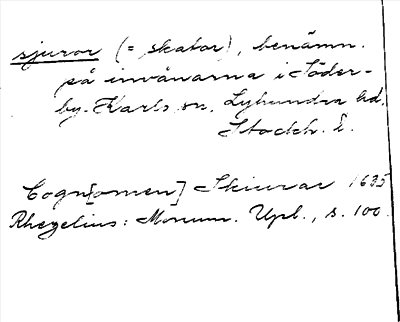 sjuror (= skator), benämn.
på invånarna i Söder-
by-Karls sn, Lyhundra hd,
Stockh. l.
Cogn[omen] Skiurar 1635
Rhezelius: Monum. Upl., s. 100.